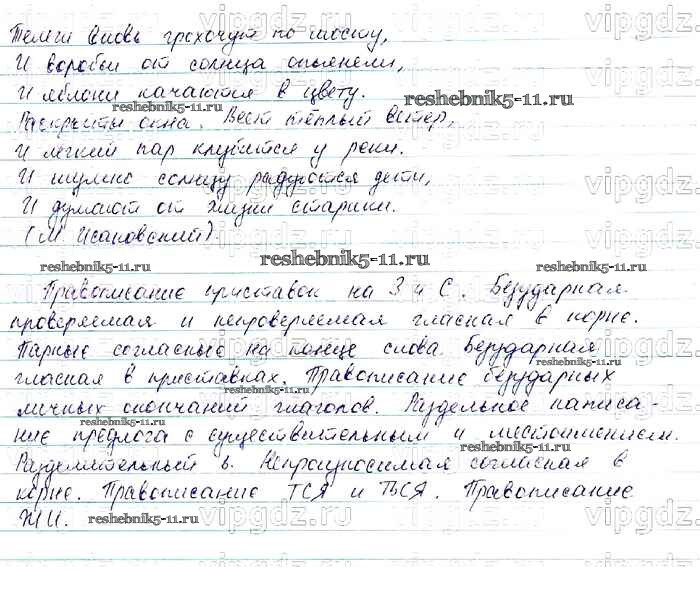 Телеги вновь грохочут по мосту,
И воробьи от солнца опьянели,
И яблони качаются в цвету.
reshebnik5-11.ru reshebnik5-11.ru
Раскрыты окна. Веет тёплый ветер,
И лёгкий пар клубится у реки.
И шумно солнцу радуются дети,
И думают от жизни старики.
(М. Исаковский).
reshebnik5-11.ru reshebnik5-11.ru reshebnik5-11.ru
Правописание приставок на З и С. Безударная
проверяемая и непроверяемая гласная в корне.
Парные согласные на конце слова. Безударная
reshebnik5-11.ru
гласная в приставках. Правописание безударных
личных окончаний глаголов. Раздельное написа-
reshebnik5-11.ru
ние предлога с существительным и местоимением.
reshebnik5-11.ru
Разделительный ь. Непроизносимая согласная в
корне. Правописание ТСЯ и ТЬСЯ. Правописание
ЖИ. reshebnik5-11.ru
vipgdz.ru